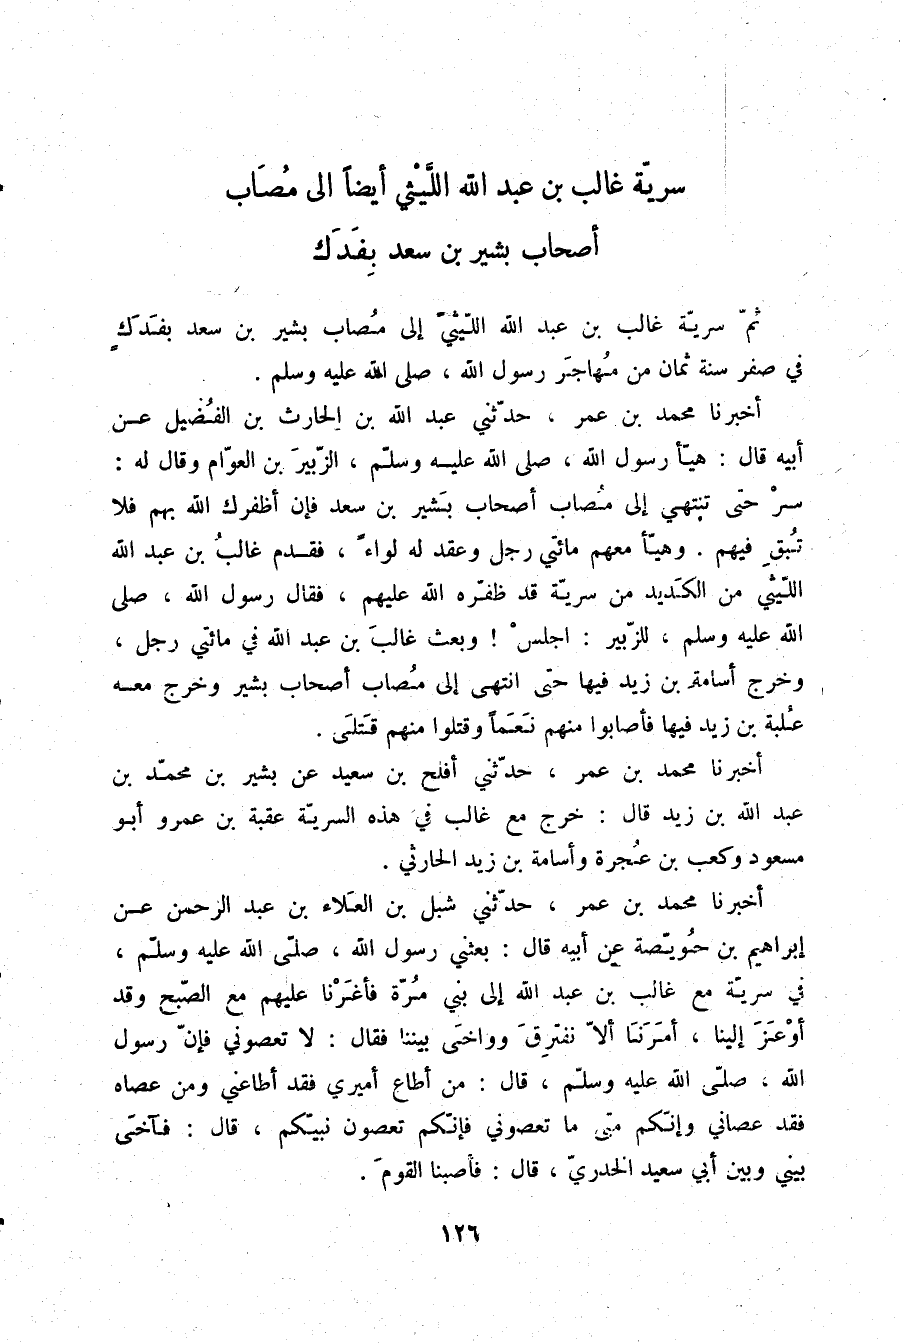 سريّة غالب بن عبد الله اللَّيْثي أيضاً الى مُصَاب
أصحاب بشير بن سعد بِفَدَك
ثمّ سريّة غالب بن عبد الله اللّيْثيّ إلى مُصاب بشير بن سعد بفَدَك
في صفر سنة ثمان من مُهاجَر رسول الله ، صلى الله عليه وسلم .
أخبرنا محمد بن عمر ، حدّثني عبد الله بن الحارث بن الفُضيل عن
أبيه قال : هيّأ رسول الله ، صلى الله عليه وسلّم ، الزّبيرَ بن العوّام وقال له :
سرْ حتى تنتهي إلى مُصاب أصحاب بَشير بن سعد فإن أظفرك الله بهم فلا
تُبْقِ فيهم . وهيّأ معهم مائتي رجل وعقد له لواءً ، فقدم غالبُ بن عبد الله
اللّيْثي من الكَديد من سريّة قد ظفّره الله عليهم ، فقال رسول الله ، صلى
الله عليه وسلم ، للزّبير : اجلسْ ! وبعث غالبَ بن عبد الله في مائتي رجل ،
وخرج أسامة بن زيد فيها حتى انتهى إلى مُصاب أصحاب بشير وخرج معه
عُلبة بن زيد فيها فأصابوا منهم نَعَماً وقتلوا منهم قَتلَى .
أخبرنا محمد بن عمر ، حدّثني أفلح بن سعيد عن بشير بن محمّد بن
عبد الله بن زيد قال : خرج مع غالب في هذه السريّة عقبة بن عمرو أبو
مسعود وكعب بن عُجرة وأسامة بن زيد الحارثي .
أخبرنا محمد بن عمر ، حدّثني شبل بن العَلاء بن عبد الرحمن عن
إبراهيم بن حُويّصة عن أبيه قال : بعثني رسول الله ، صلّى الله عليه وسلّم ،
في سريّة مع غالب بن عبد الله إلى بني مُرّة فأغَرْنا عليهم مع الصّبح وقد
أوْعَزَ إلينا ، أمَرَنَا ألاّ نفترِقَ وواخَى بيننا فقال : لا تعصوني فإنّ رسول
الله ، صلّى الله عليه وسلّم ، قال : من أطاع أميري فقد أطاعني ومن عصاه
فقد عصاني وإنّكم متى ما تعصوني فإنّكم تعصون نبيّكم ، قال : فآخَى
بيني وبين أبي سعيد الخدريّ ، قال : فأصبنا القومَ .
١٢٦